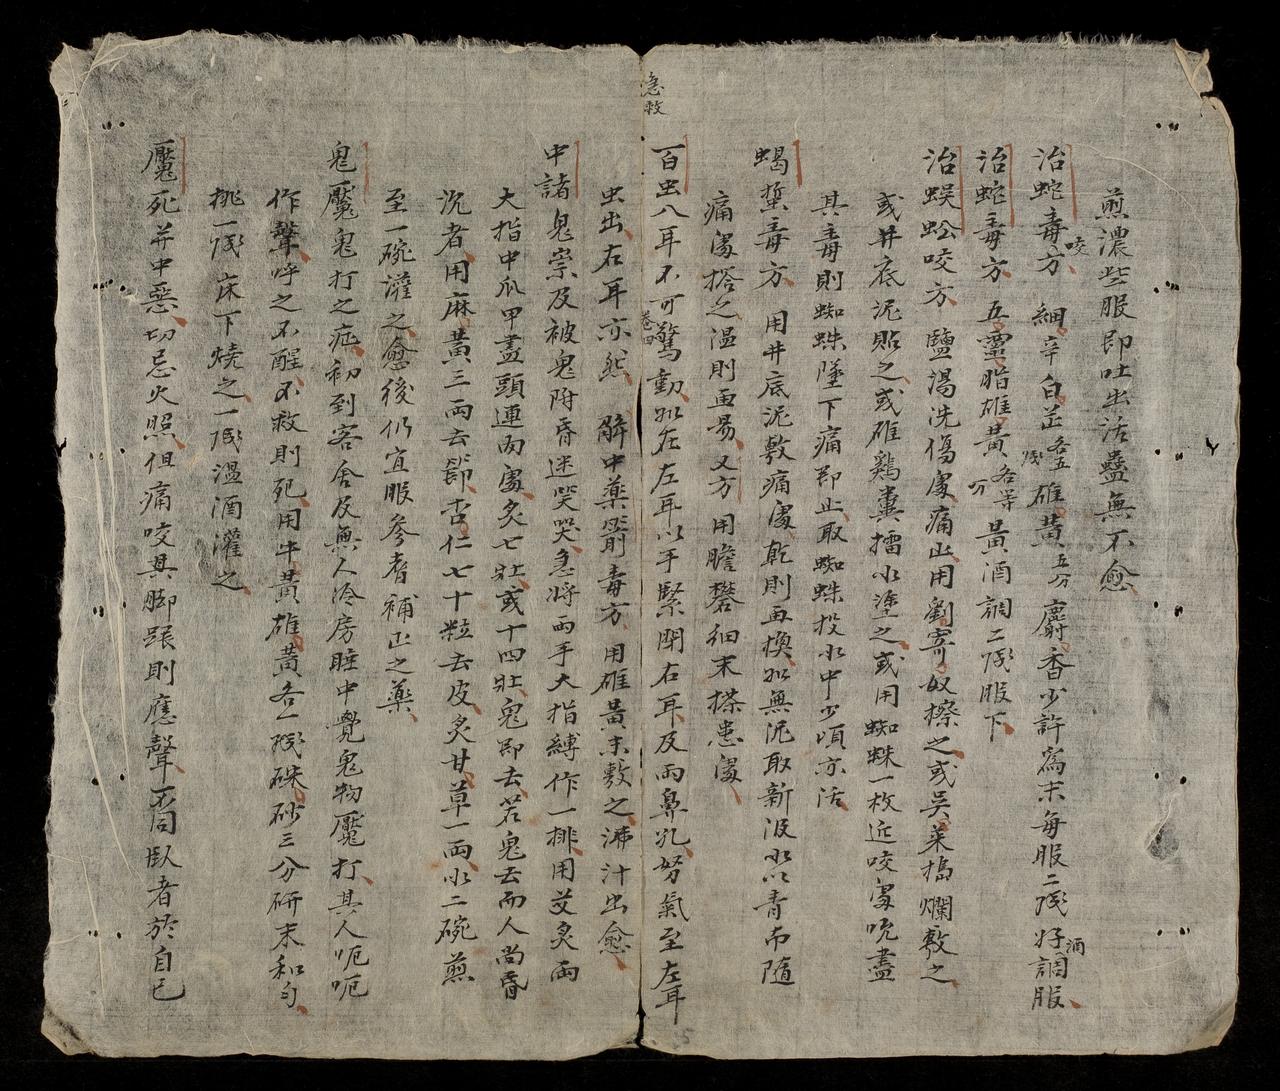 煎濃些服即吐出活蠱無不愈
治蛇毒咬方 細辛白芷各五錢雄黃五分麝香少許為末每服二錢好酒調服
治蛇毒方 五靈脂雄黃各等分黃酒調二錢服下
治蜈蚣咬方 鹽湯洗傷處痛止用劉寄奴擦之或吳菜搗爛敷之
或井底泥貼之或雄鷄糞擂水塗之或用蜘蛛一枚近咬處吮盡
其毒則蜘蛛墜下痛即止取蜘蛛投水中少頃亦活
蝎蜇毒方 用井底泥敷痛處乾則再換如無泥取新汲水以青布隨
痛處搭之溫則再易又方 用膽礬細末搽患處
急救
卷四
百虫入耳不可驚動如在左耳以手緊閉右耳及兩鼻孔努氣至左耳
虫出右耳亦然 解中藥箭毒方 用雄黃末敷之沸汁出愈
中諸鬼祟及被鬼附昏迷哭哭急將兩手大指縛作一排用艾炙兩
大指中爪甲盡頭連兩處炙七壯或十四壯鬼即去若鬼去而人尚昏
沉者用麻黃三兩去節杏仁七十粒去皮炙甘草一兩水二碗煎
至一碗灌之愈後仍宜服參耆補正之藥
鬼魘鬼打之症初到客舍及無人冷房睡中覺鬼物魘打其人呃呃
作聲呼之不醒不救則死用牛黃雄黃各一錢硃砂三分研末和勻
挑一錢床下燒之一錢溫酒灌之
魘死并中惡切忌火照但痛咬其脚跟則應聲不同臥者於自己